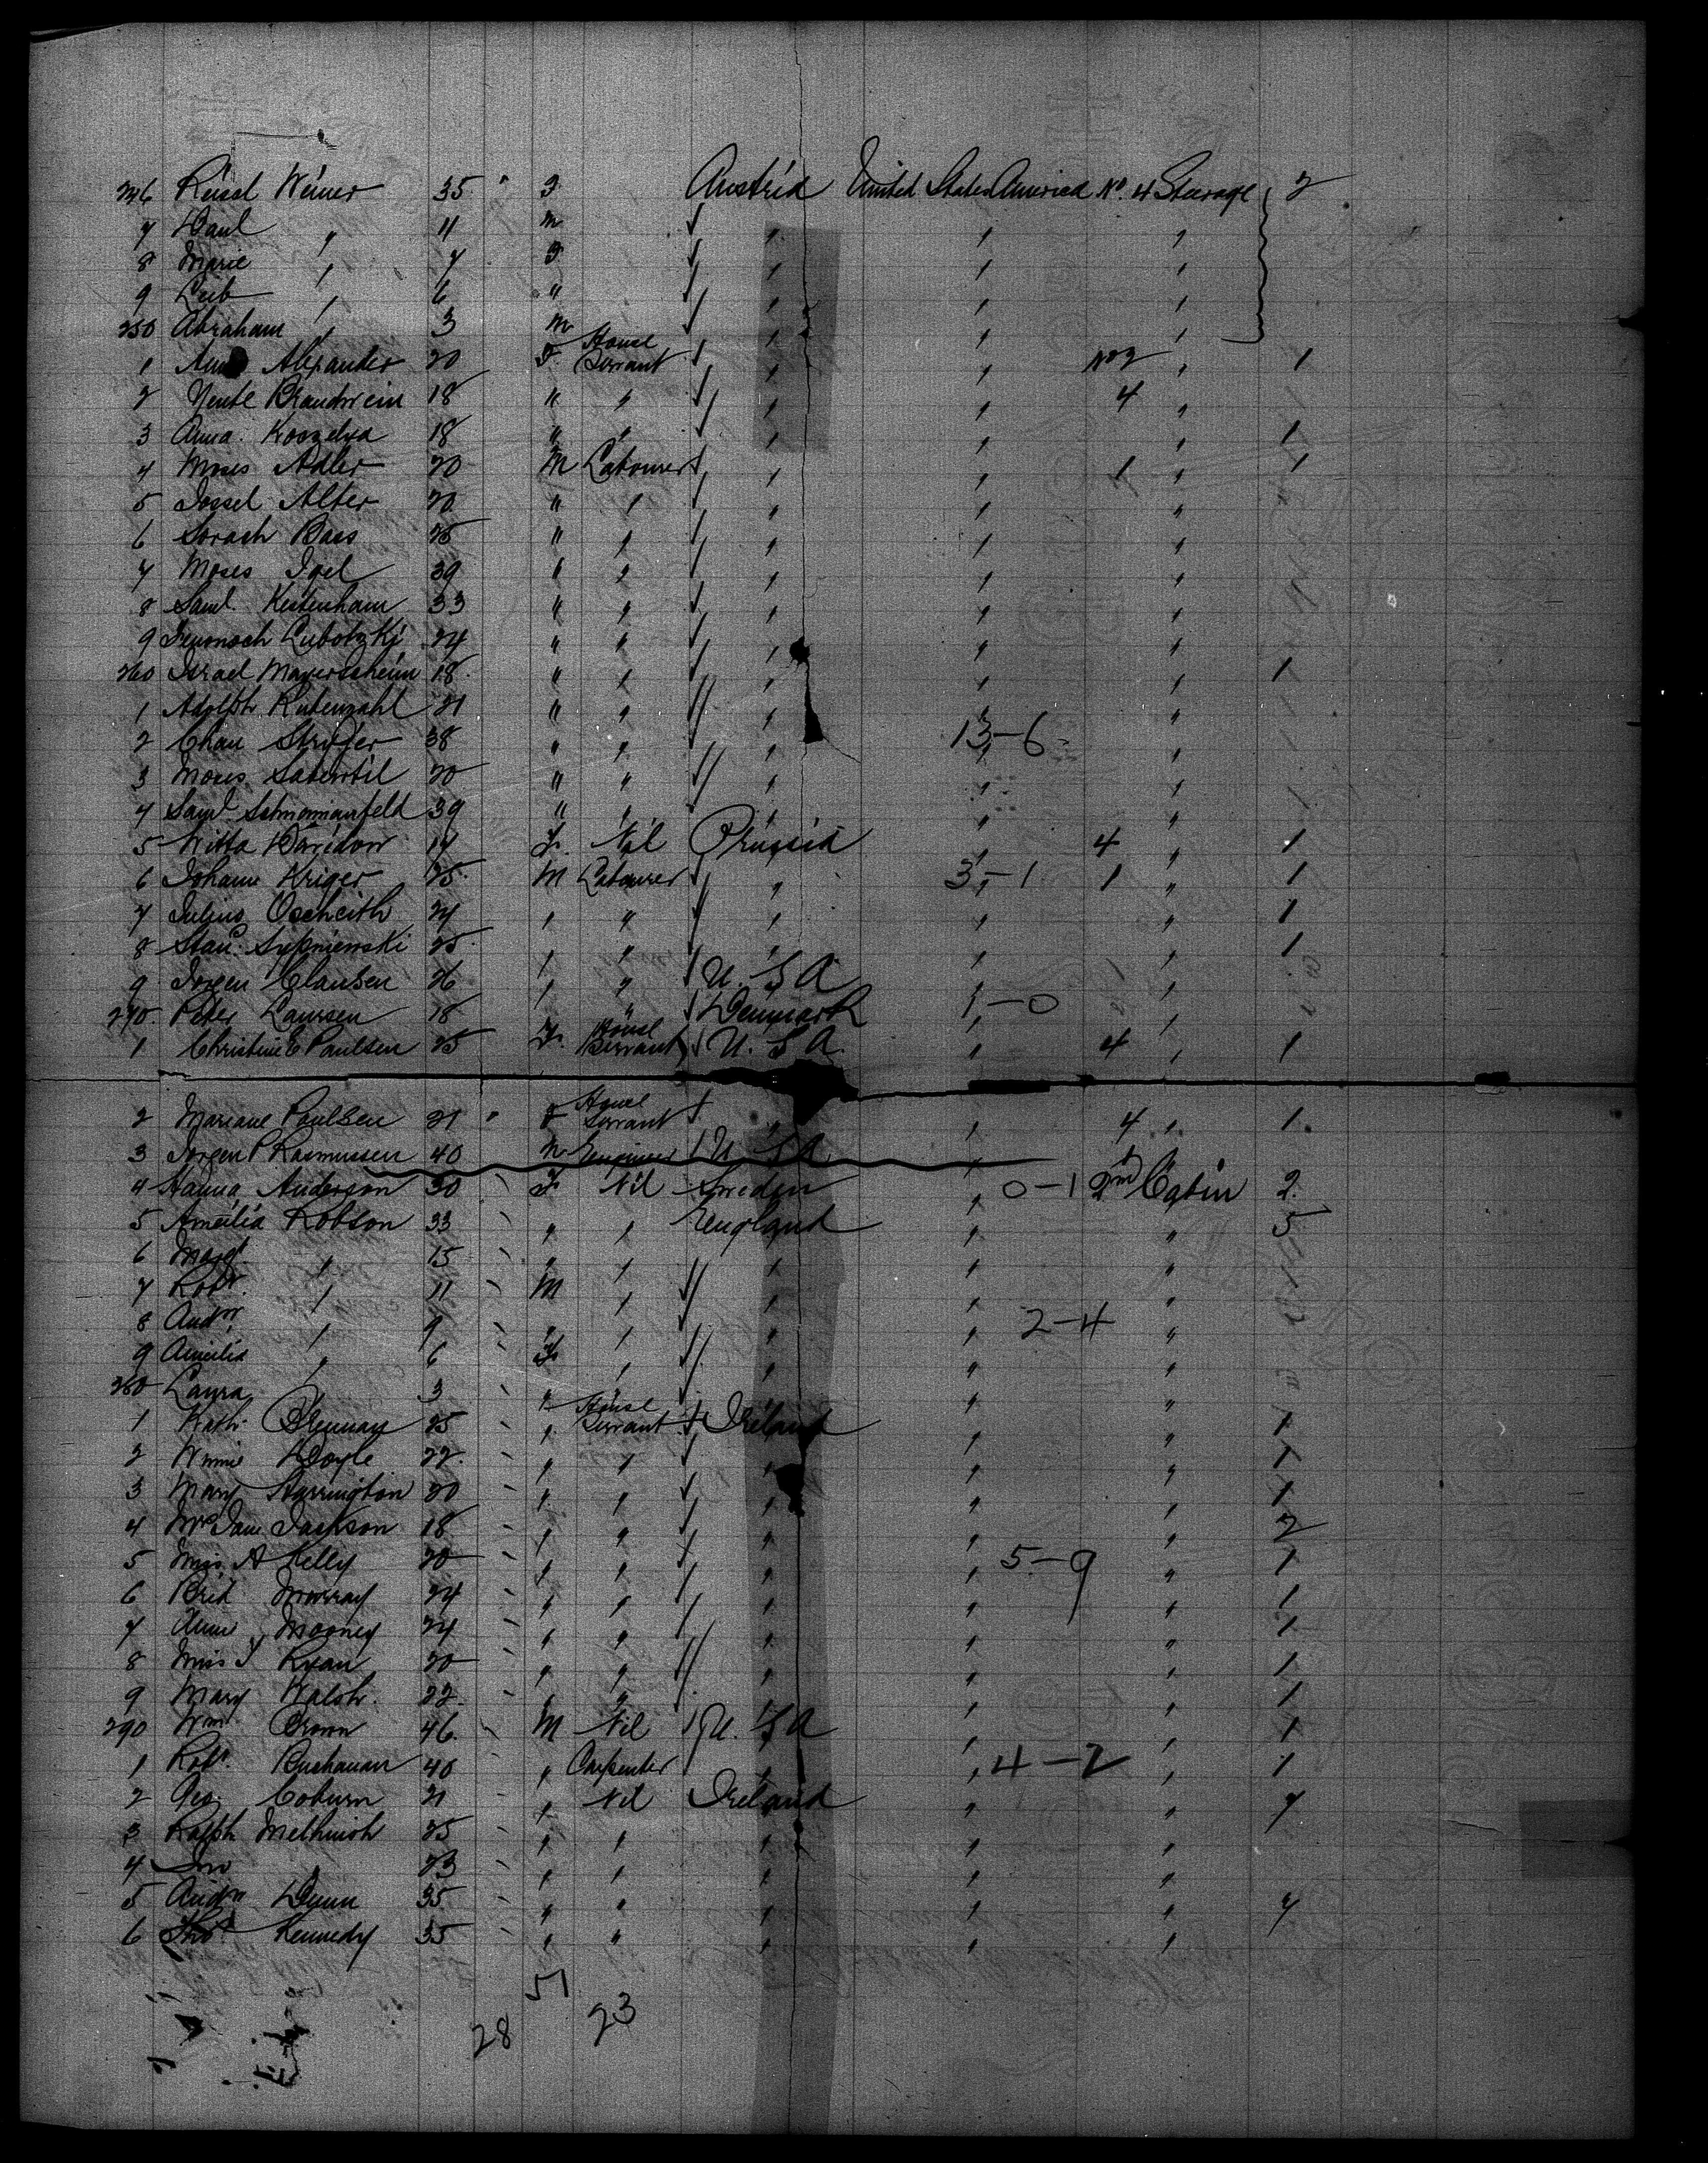 246 Reissl Weiner 35 " F Austria United States America No. 4 Steerage 2
7 Paul " 11 m " " "
8 Marie " 7 F " " "
9 Leib " 6 " " " "
250 Abraham " 3 m " " "
1 Alexander 20 F House Servant " " No 2 " 1
2 Yente Brandwein 18 " " " " 4 "
3 Anna 18 " " " " " 1
4 Moses Adler 20 M Labourer " " 1 " 1
5 Jossel Alter 20 " " " " "
6 Sorach Bass 25 " " " " "
7 Moses Igel 39 " " " " "
8 Saml. Kestenham 33 " " " " "
9 Lubotzki 24 " " " " "
260 Israel 18 " " " " " 1
1 Adolph Rubenzahl 21 " " " " "
2 Chan Stryfer 38 " " " 13-6 "
3 Moses 20 " " " " "
4 Saml. 39 " " " " "
5 Witta Davidow 17 F. Nil Prussia " 4 " 1
6 Johann Kriger 25 M Labourer " 3-1 1 " 1
7 Julius 24 " " " " " 1
8 Stan. Sypniewski 25 " " " " " 1
9 Jorgen Clausen 26 " " U. S A " "
270 Peter Laursen 18 " " Denmark 1-0 "
1 Christine C Paulsen 25 F. House Servant U. S A. " 4 " 1
2 Mariane Paulsen 21 " F House Servant " " 4 " 1
3 Jorgen P Rasmussen 40 m Engineer U S A " "
4 Hanna Anderson 30 F Nil Sweden " 0-1 2nd Cabin 2
5 Amelia Robson 33 " " England " " 5
6 Margt " 15 " " " " "
7 Robt. " 11 M " " " "
8 Andw. " 9 " " " 2-4 "
9 Amelia " 6 F " " " "
280 Laura " 3 " " " " "
1 Kath. Brennan 25 " House Servant Ireland " " 1
2 Winnie Doyle 22 " " " " " 1
3 Mary Harrington 20 " " " " " 1
4 Mrs Jane Jackson 18 " " " " " 2
5 Miss A Kelly 20 " " " 5-9 " 1
6 Brid Murray 24 " " " " " 1
7 Annie Mooney 24 " " " " " 1
8 Miss J Ryan 20 " " " " " 1
9 Mary Walsh 22 " " " " " 1
290 Wm. Brown 46 M Nil U. S A " " 1
1 Robt. Buchanan 40 " Carpenter " 4-2 " 1
2 Geo. Coburn 21 " Nil Ireland " " 7
3 Ralph Melhuish 25 " " " " "
4 Jno " 23 " " " " "
5 Andw Dunn 35 " " " " " 7
6 Thos Kennedy 35 " " " " "
51
28 23